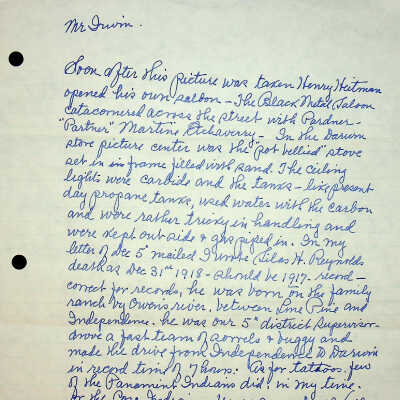 Mr Irwin.
Soon after this picture was taken Henry Heitman
opened his own saloon - The Black Metal Saloon
catacornered across the street with Pardner-
"Partner" Martine Etchaverry - In the Darwin
store picture center was the "pot bellied" stove
set in in frame filled with sand. The Ceiling
lights were carbide and the tanks - like present
day propane tanks, used water with the carbon
and were rather tricky in handling and
were kept out-side & gas piped in. In my
letter of Dec 5th mailed I wrote Silas H. Reynolds
death as Dec 31st 1918 - should be 1917 - record -
correct for records, he was born on the family
ranch by Owens river, between Lone Pine and
Independence. he was our 5th district Supervisor-
drove a fast team of sorrels & buggy and
made the drive from Independence to Darwin
in record time of 7 hours. as for tattoos. few
of the Panamint Indians did. in my time.